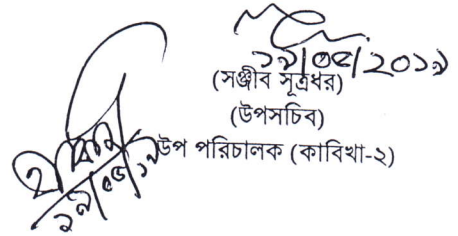 ১৯/০৫/২০১৯
(সঞ্জীব সূত্রধর)
(উপসচিব)
উপ পরিচালক (কাবিখা-২)
১৯/০৫/১৯